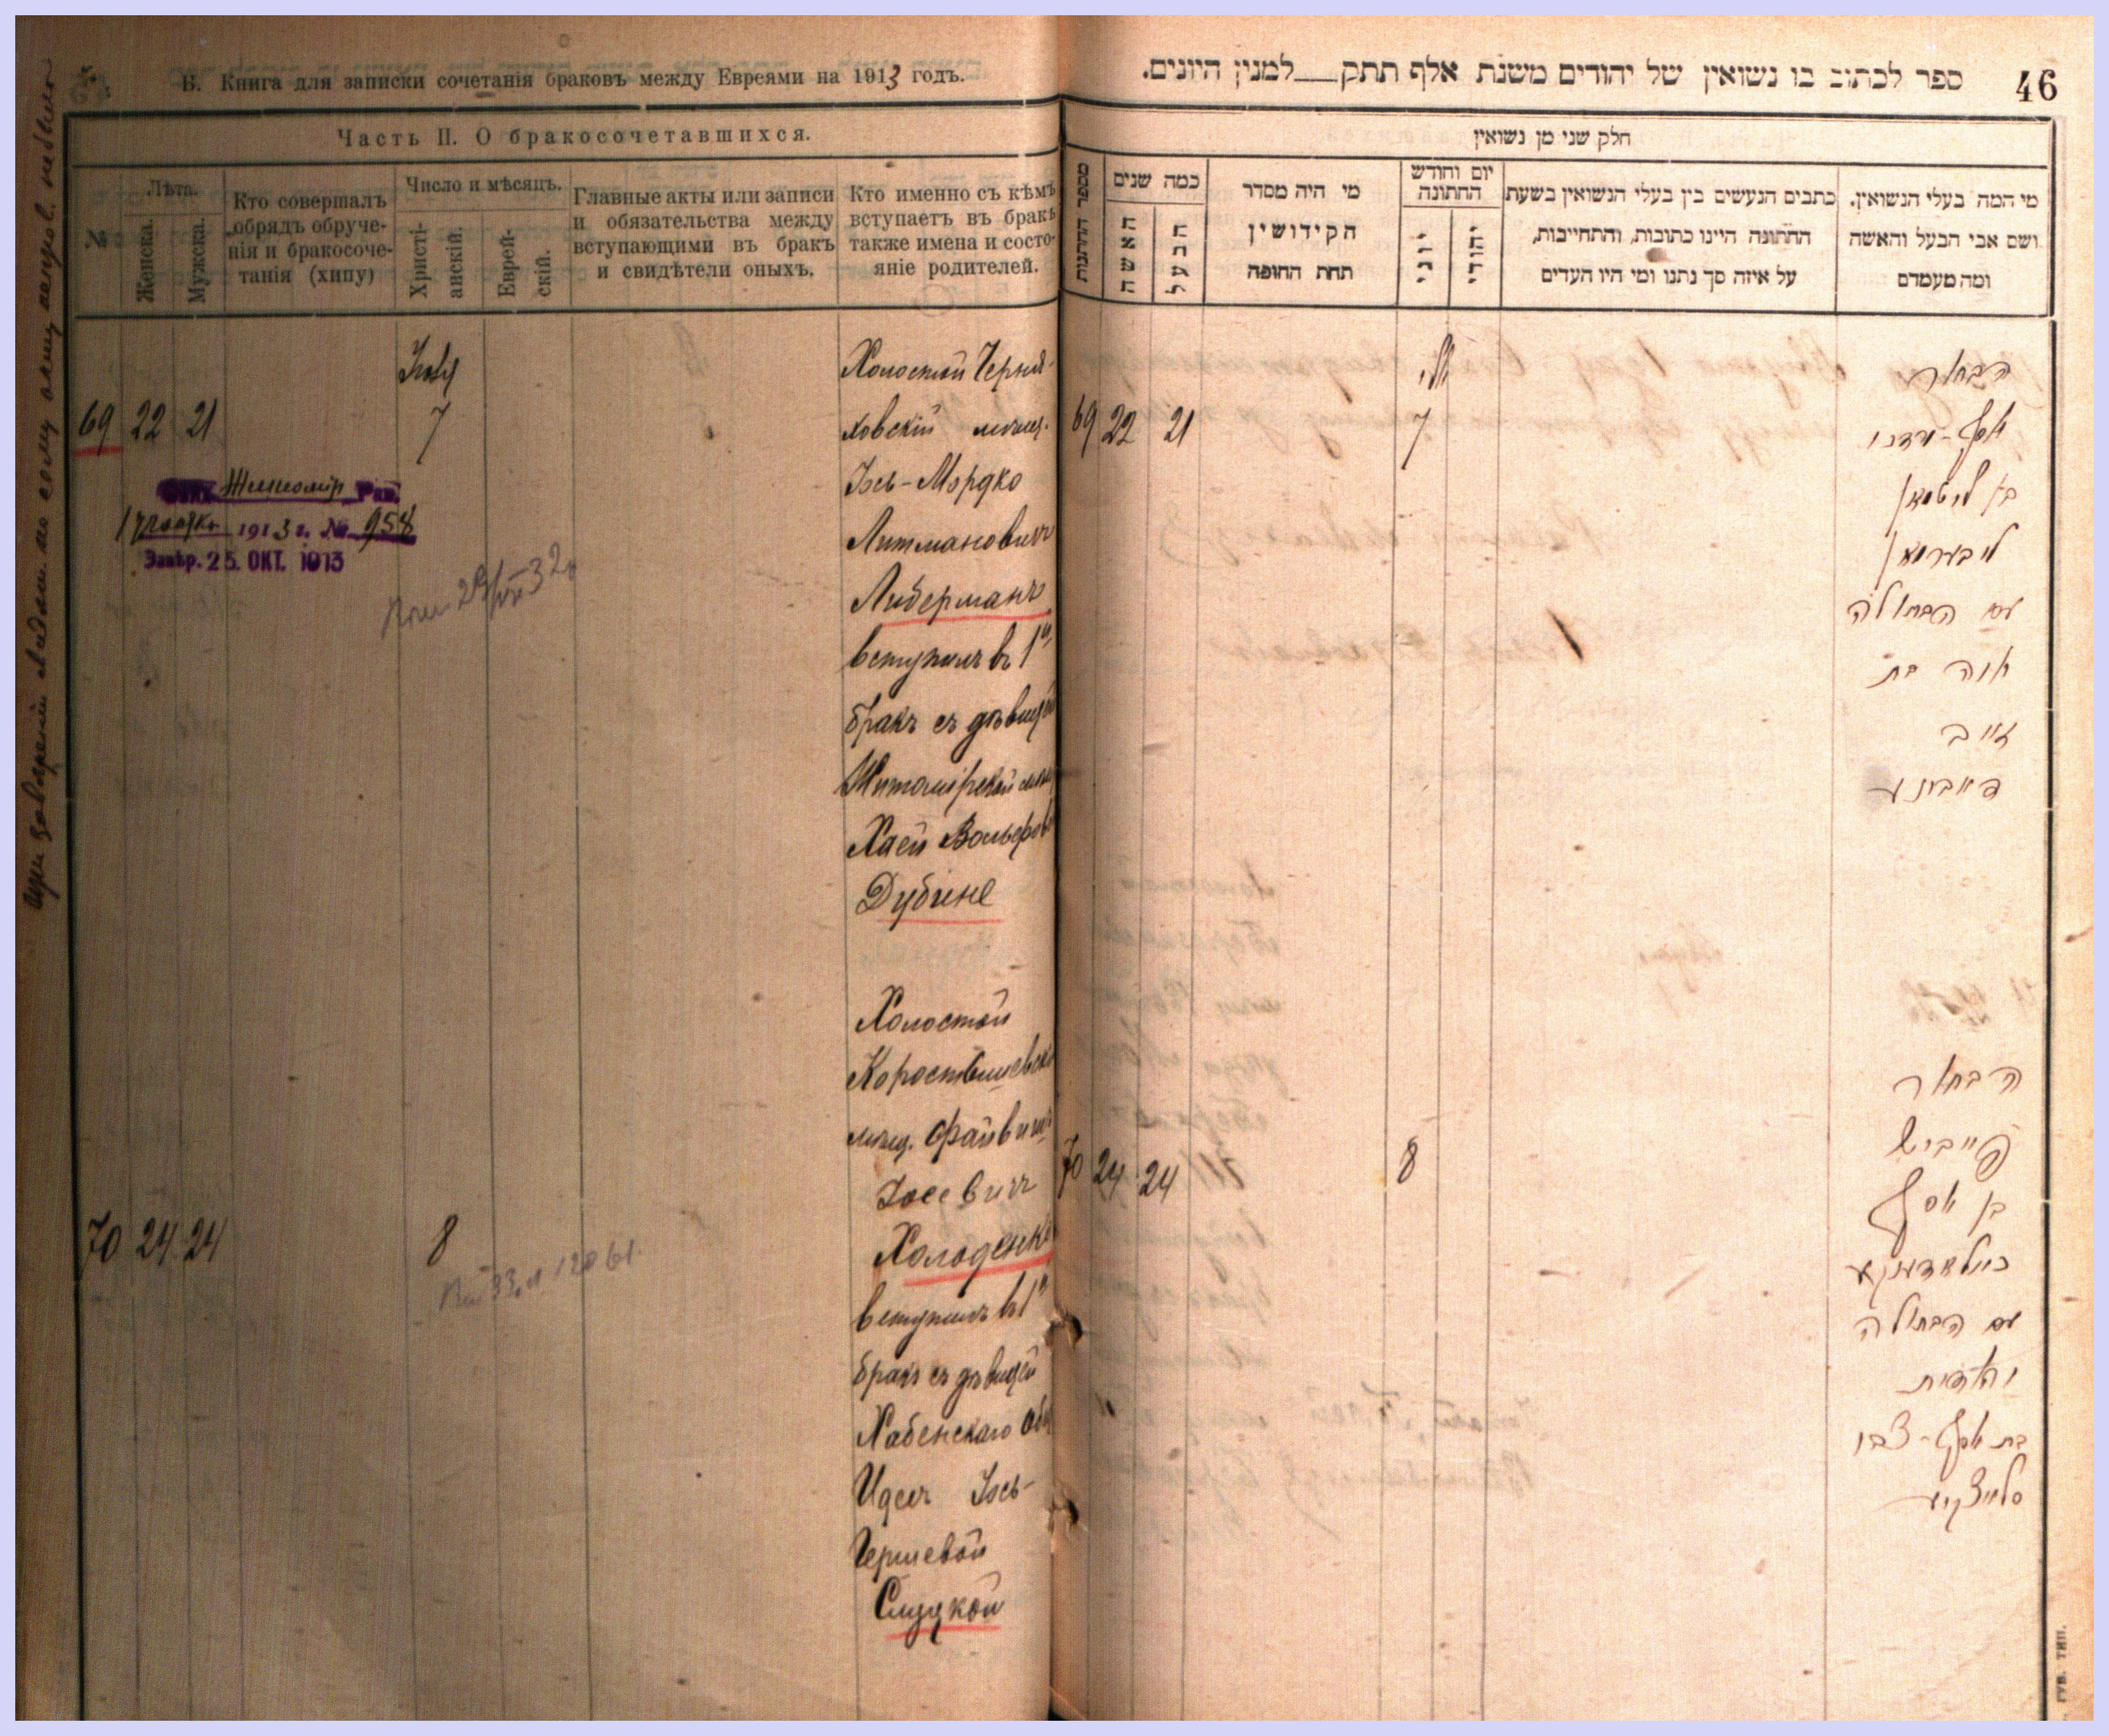 В. Книга для записки сочетанія браковъ между Евреями на 1913 годъ.
Часть II. О бракосочетавшихся.
№
Лѣта.
Женска.
Мужска.
Кто совершалъ
обрядъ обруче-
нія и бракосоче-
танія (хипу)
Число и мѣсяцъ.
Христі-
анскій.
Еврей-
скій.
Главные акты или записи
и обязательства между
вступающими въ бракъ
и свидѣтели оныхъ.
Кто именно съ кѣмъ
вступаетъ въ бракъ
также имена и состо-
яніе родителей.
69 22 21
7
Житомір. Рав.
1913 г. № 958
Завѣр. 25. ОКТ. 1913
Холостой Черня-
ховскій мѣщ.
Іось-Мордко
Литмановичъ
Либерманъ
вступилъ въ 1й
бракъ съ дѣвицей
Житомірской мѣщ.
Хаей Вольфов
Дубине
70 24 24
8
Холостой
Коростышевск
мѣщ. Файвишъ
Іосевичъ
Холоденко
вступилъ въ 1й
бракъ съ дѣвицей
Хабенскаго общ
Идесъ Іось-
Гершевой
Слуцкой
46
ספר לכתוב בו נשואין של יהודים משנת אלף תתק למנין היונים.
חלק שני מן נשואין
מספר החתונות
כמה שנים
האשה
הבעל
מי היה מסדר
הקידושין
תחת החופה
יום וחודש
החתונה
יוני
יהודי
כתבים הנעשים בין בעלי הנשואין בשעת
החתונה היינו כתובות, והתחייבות,
על איזה סך נתנו ומי היו העדים
מי המה בעלי הנשואין.
ושם אבי הבעל והאשה
ומה מעמדם
69 22 21
7
הבחור
יוסף-מרדכי
בן ליטמאן
ליבערמאן
עם הבתולה
חיה בת
זייב
70 24 24
8
הבחור
פייביש
בן יוסף
עם הבתולה
בת יוסף-צבי
סלוצקיע
ГУБ. ТИП.